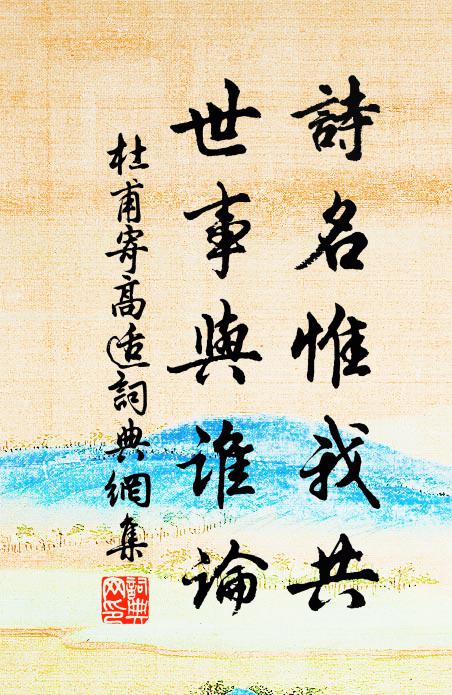 詩名惟我共
世事與誰論
杜甫寄高适詞典網集
詞典网印